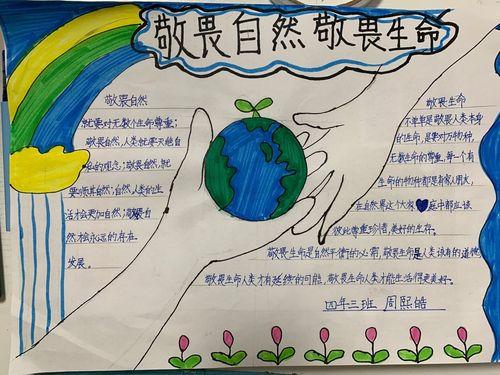 敬畏自然 敬畏生命
敬畏自然
就要对无数个生命尊重;
敬畏自然,人类就要天地自
的观念;敬畏自然,就
要顺其自然;自然,人类的生
活才会更加自然;敬畏自
然才会永远的存在
发展。
敬畏生命
不单单是敬畏人类本身
的生命,是要对万物种,
无数生命的尊重,每一个有
生命的物种都是有家人朋友,
在自然界这个大家庭中都应该
彼此尊重珍惜,美好的生存。
敬畏生命是自然平衡的必需,敬畏生命是人类该有的道德,
敬畏生命人类才有延续的可能,敬畏生命人类才能生活得更美好。
四年三班 周熙皓